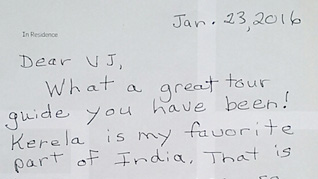 Jan. 23, 2016
In Residence
Dear VJ,
What a great tour
guide you have been!
Kerela is my favorite
part of India. That is